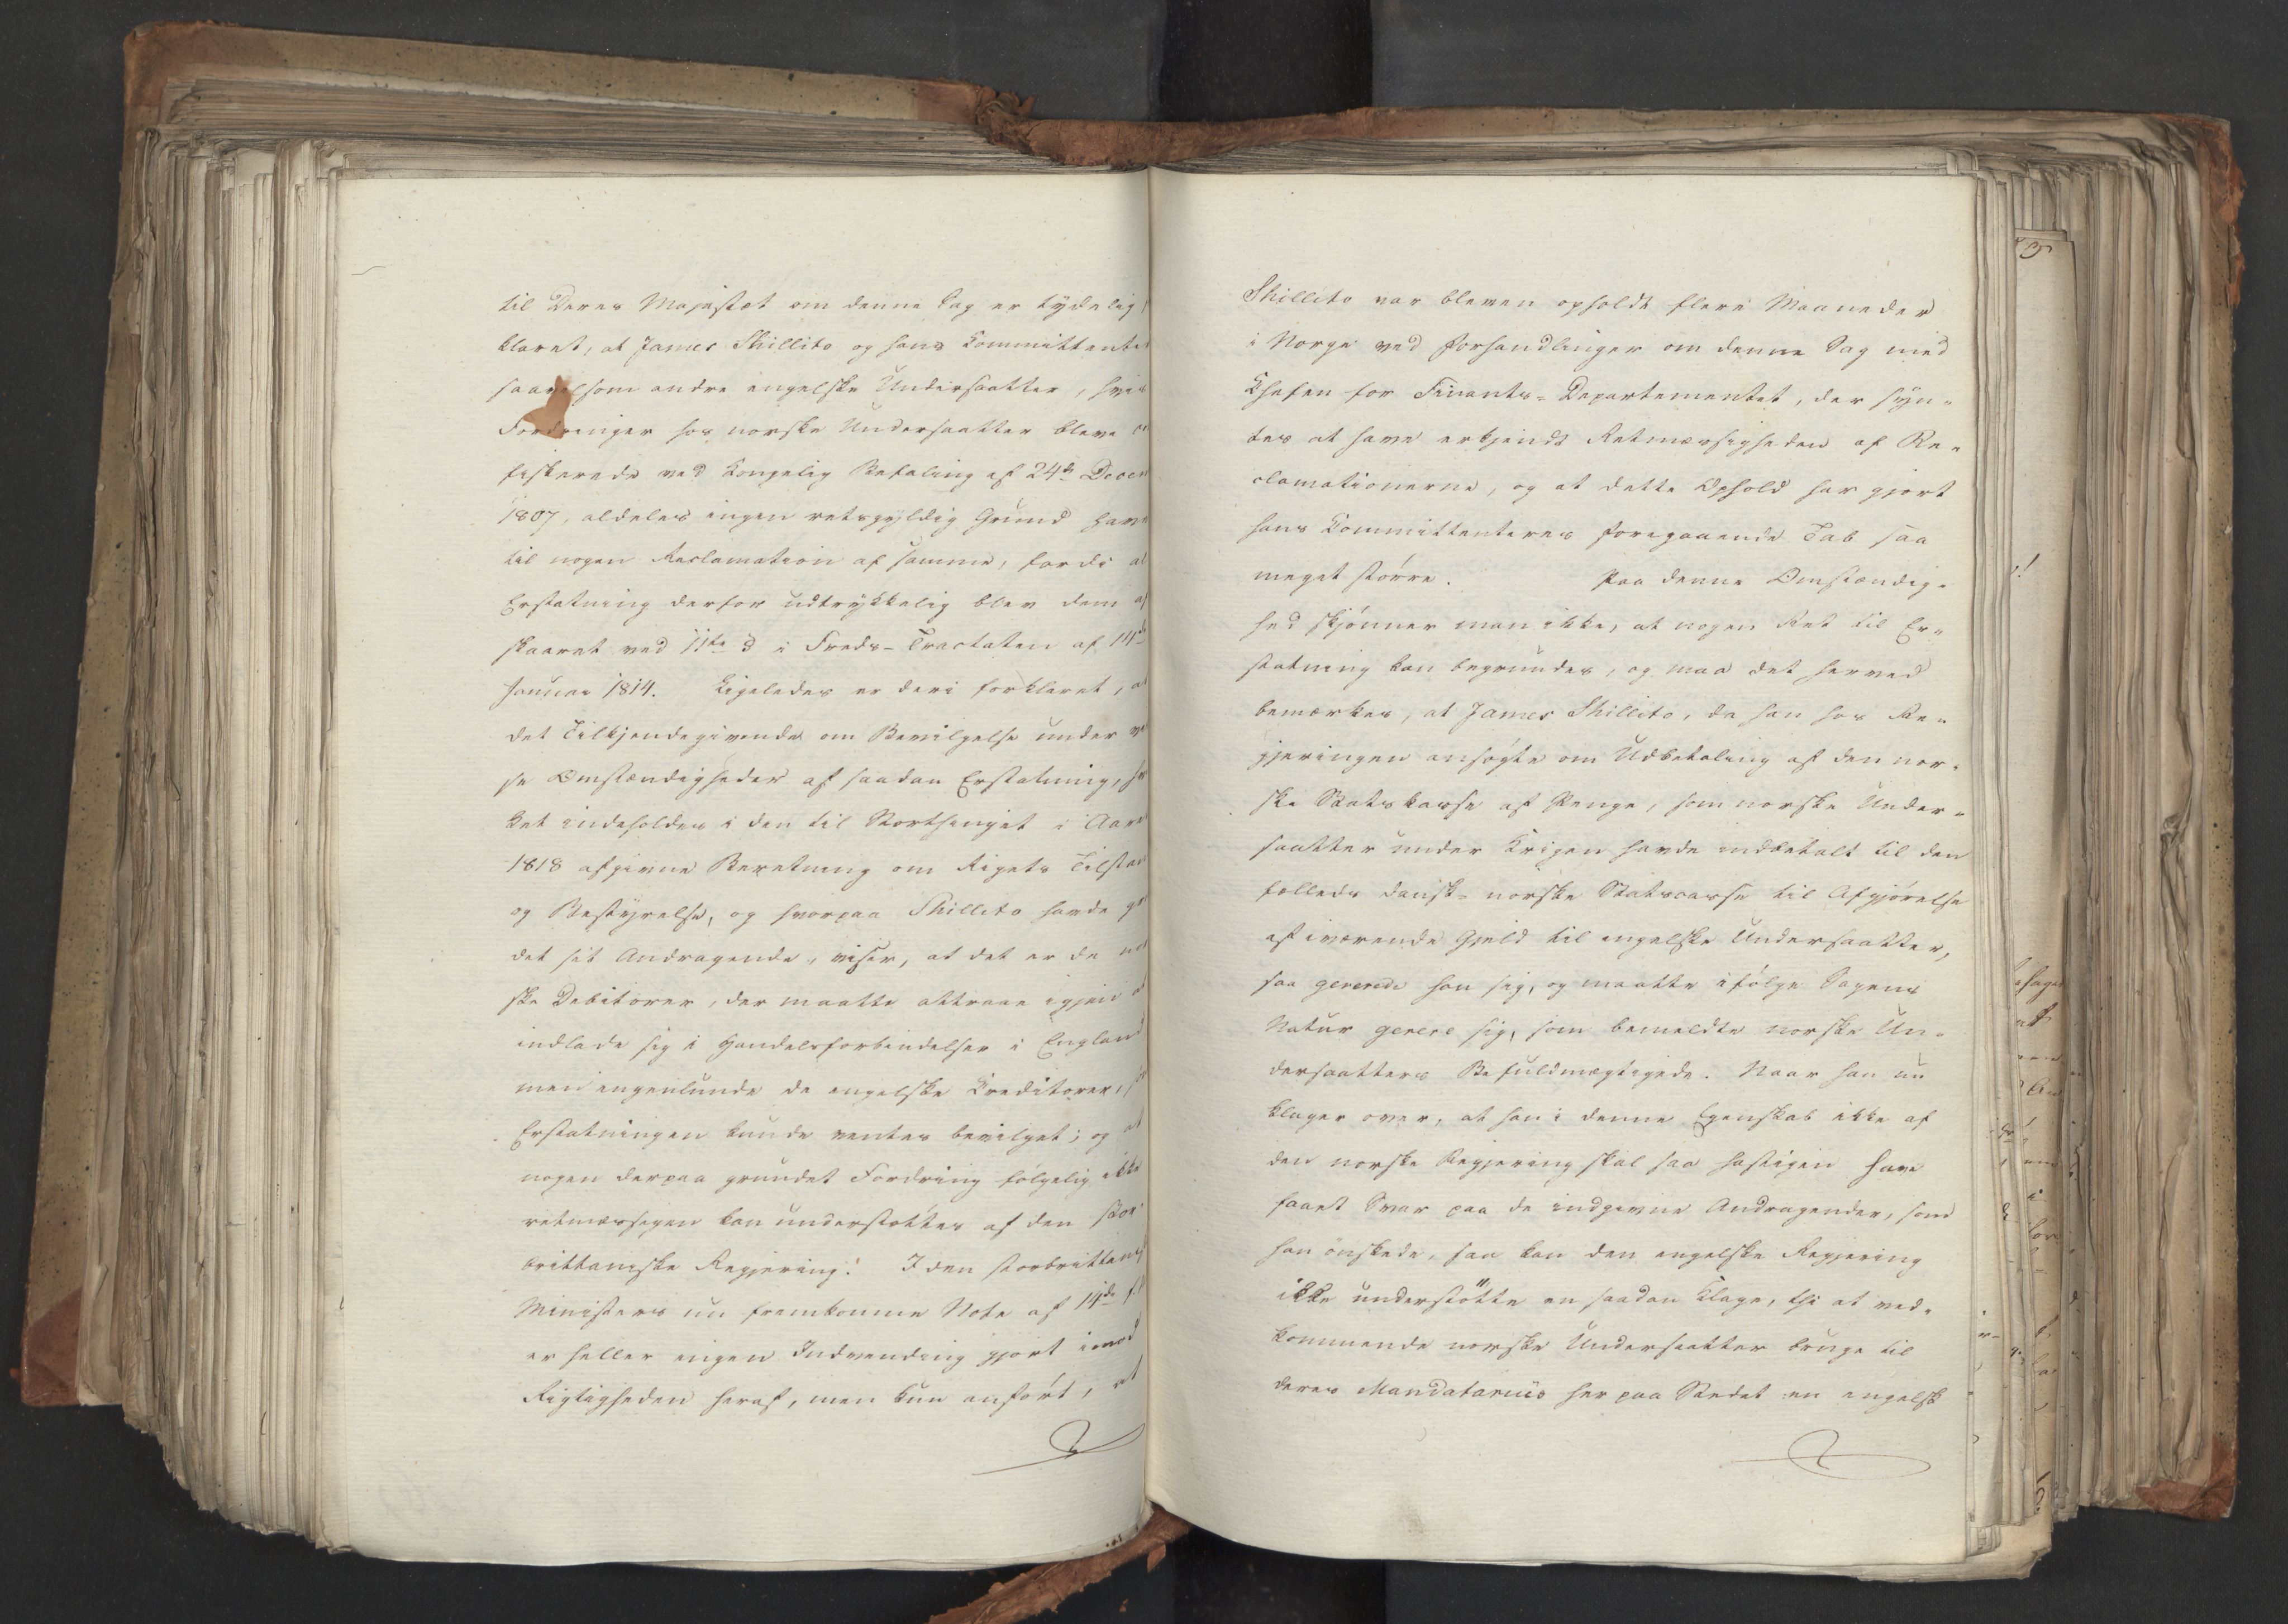 til Deres Majestæt om denne Sag er tydelig
klaret, at James Shillito og hans Committenter
saavelsom andre engelske Undersaatter, hvis
Fordringer hos norske Undersaatter bleve
fiskerede ved Kongelig Befaling af 24de Decem
1807, aldeles ingen retsgyldig Grund have
til nogen Reclamation af samme, fordi al
Erstatning derfor udtrykkelig blev dem af
skaaret ved 11te § i Freds-Tractaten af 14de
Januar 1814. Ligeledes er deri forklaret, at
det Tilkjendegivende om Bevilgelse under vis
se Omstændigheder af saadan Erstatning, hvil
ket indeholdes i den til Storthinget i Aaret
1818 afgivne Beretning om Rigets Tilstand
og Bestyrelse, og hvorpaa Shillito havde grun
det sit Andragende, viser, at det er de nor
ske Debitorer, der maatte attraae igjen at
indlade sig i Handelsforbindelser i England
men ingenlunde de engelske Creditorer,
Erstatningen kunde ventes bevilget; og at
nogen derpaa grundet Fordring følgelig ikke
retmæssigen kan understøttes af den stor
brittaniske Regjering. I den storbrittanisk
Ministers nu fremkomne Note af 14de f. M
er heller ingen Indvending gjort imod
Rigtigheden heraf, men kun anført, at
Shillito var bleven opholdt flere Maaneder
i Norge ved Forhandlinger om denne Sag med
Chefen for Finants-Departementet, der syn-
tes at have erkjendt Retmæssigheden af Re-
clamationerne, og at dette Ophold har gjort
hans Committenteres foregaaende Tab saa
meget større. Paa denne Omstændig-
hed skjønner man ikke, at nogen Ret til Er-
statning kan begrundes, og maa det herved
bemærkes, at James Shillito, da han hos Re-
gjeringen ansøgte om Udbetaling af den nor-
ske Statskasse af Penge, som norske Under-
saatter under Krigen havde indbetalt til den
fælleds dansk-norske Statscasse til Afgjørelse
af iværende Gjeld til engelske Undersaatter,
saa gererede han sig, og maatte ifølge Sagens
Natur gerere sig, som bemeldte norske Un-
dersaatters Befuldmægtigede. Naar han nu
klager over, at han i denne Egenskab ikke af
den norske Regjering skal saa hastigen have
faaet Svar paa de indgivne Andragender, som
han ønskede, saa kan den engelske Regjering
ikke understøtte en saadan Klage, thi at ved-
kommende norske Undersaatter bruge til
deres Mandatarius her paa Stedet en engelsk